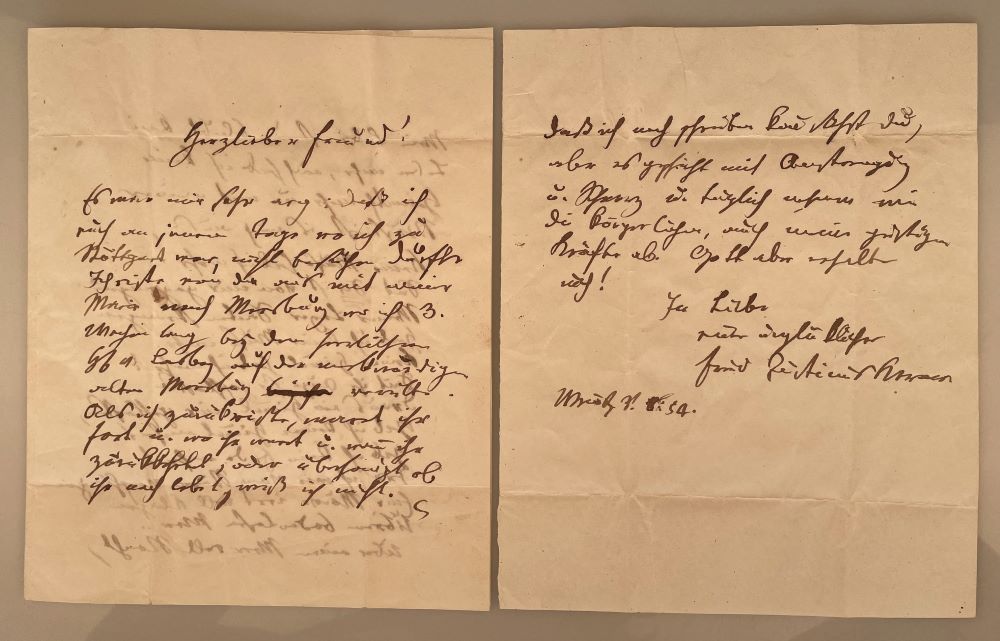 Herzlieber Freund!
Es war mir sehr arg, daß ich
euch an jenem Tage wo ich zu
Stuttgart war, nicht besuchen durfte
Ich reiste von da aus mit meiner
Marie nach Meersburg wo ich 3.
Wochen lang bey dem herrlichen
Laßberg auf der merkwürdigen
alten Meersburg verweilte.
Als ich zurükreiste, waret ihr
fort u. wo ihr waret u. wann ihr
zurükkehrtet, oder überhaupt ob
ihr noch lebet, weiß ich nicht.
daß ich noch schreiben kan siehst du,
aber es geschieht mit
u. Schmerz u. täglich nehmen wie
die körperlichen, auch meine geistigen
Kräfte ab. Gott aber erhalte
euch!
In Liebe
euer unglüklicher
Freund Justinus Kerner
54.